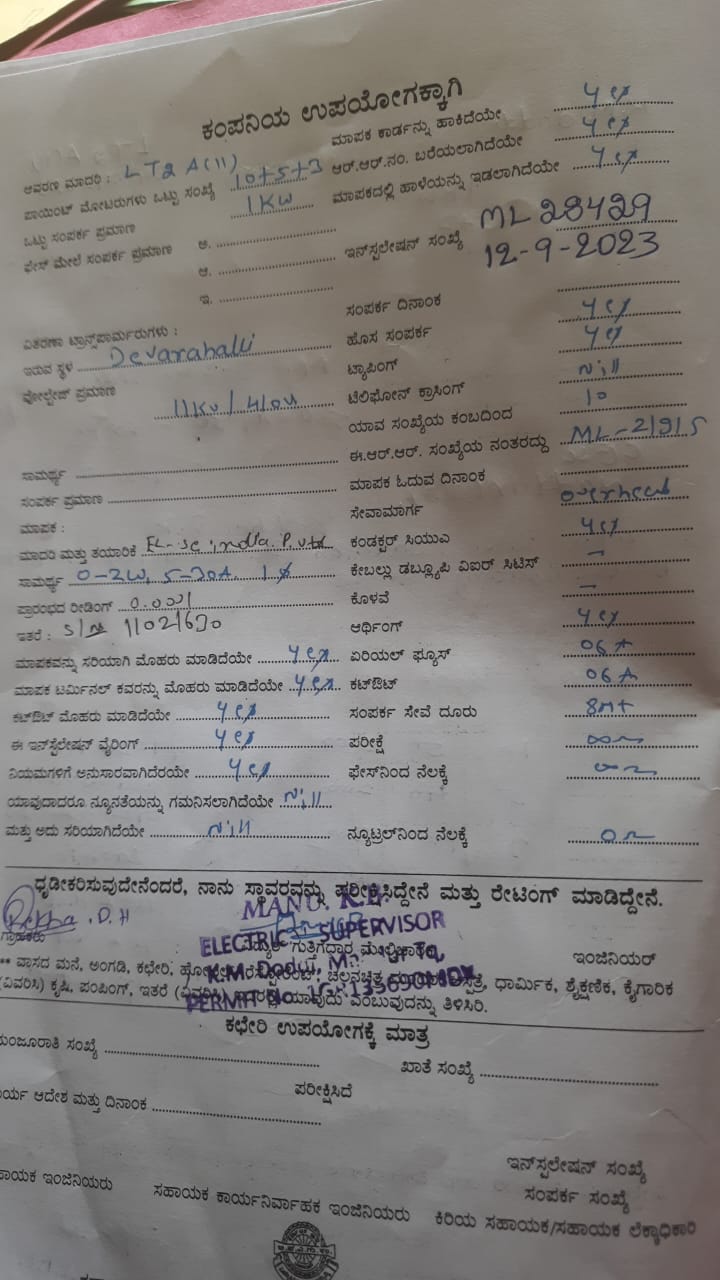 ಕಂಪನಿಯ ಉಪಯೋಗಕ್ಕಾಗಿ
ಆವರಣ ಮಾದರಿ : LT2 A(11) ಮಾಪಕ ಕಾರ್ಡನ್ನು ಹಾಕಿದೆಯೇ yes
ಪಾಯಿಂಟ್ ಮೋಟರುಗಳು ಒಟ್ಟು ಸಂಖ್ಯೆ 10+5+3 ಆರ್.ಆರ್.ನಂ. ಬರೆಯಲಾಗಿದೆಯೇ yes
ಒಟ್ಟು ಸಂಪರ್ಕ ಪ್ರಮಾಣ 1KW ಮಾಪಕದಲ್ಲಿ ಹಾಳೆಯನ್ನು ಇಡಲಾಗಿದೆಯೇ yes
ಫೇಸ್ ಮೇಲೆ ಸಂಪರ್ಕ ಪ್ರಮಾಣ ಅ. ಇನ್‌ಸ್ಟಲೇಷನ್ ಸಂಖ್ಯೆ ML 28429
ಆ. 12-9-2023
ಇ. ಸಂಪರ್ಕ ದಿನಾಂಕ
ವಿತರಣಾ ಟ್ರಾನ್ಸ್‌ಫಾರ್ಮರುಗಳು : ಹೊಸ ಸಂಪರ್ಕ yes
ಇರುವ ಸ್ಥಳ Devarahalli ಟ್ಯಾಪಿಂಗ್ yes
ವೋಲ್ಟೇಜ್ ಪ್ರಮಾಣ 11KV / ಟೆಲಿಫೋನ್ ಕ್ರಾಸಿಂಗ್ Nill
ಯಾವ ಸಂಖ್ಯೆಯ ಕಂಬದಿಂದ 10
ಸಾಮರ್ಥ್ಯ ಈ.ಆರ್.ಆರ್. ಸಂಖ್ಯೆಯ ನಂತರದ್ದು ML-21915
ಸಂಪರ್ಕ ಪ್ರಮಾಣ ಮಾಪಕ ಓದುವ ದಿನಾಂಕ
ಮಾಪಕ : ಸೇವಾಮಾರ್ಗ overhead
ಮಾದರಿ ಮತ್ತು ತಯಾರಿಕೆ india P. Ltd ಕಂಡಕ್ಟರ್ ಸಿಯುವಿ yes
ಸಾಮರ್ಥ್ಯ 0-2W, 5-30A. 1 ø ಕೇಬಲ್ಲು ಡಬ್ಲ್ಯೂಪಿ ವಿಐರ್ ಸಿಟಿಸ್ –
ಪ್ರಾರಂಭದ ರೀಡಿಂಗ್ 0.001 ಕೊಳವೆ –
ಇತರೆ : 11021630 ಆರ್ಥಿಂಗ್ yes
ಮಾಪಕವನ್ನು ಸರಿಯಾಗಿ ಮೊಹರು ಮಾಡಿದೆಯೇ yes ಏರಿಯಲ್ ಫ್ಯೂಸ್ 06 A
ಮಾಪಕ ಟರ್ಮಿನಲ್ ಕವರನ್ನು ಮೊಹರು ಮಾಡಿದೆಯೇ yes ಕಟ್‌ಔಟ್ 06 A
ಕಟ್‌ಔಟ್ ಮೊಹರು ಮಾಡಿದೆಯೇ yes ಸಂಪರ್ಕ ಸೇವೆ ದೂರು 8Mt
ಈ ಇನ್‌ಸ್ಟೆಲೇಷನ್ ವೈರಿಂಗ್ yes ಪರೀಕ್ಷೆ
ನಿಯಮಗಳಿಗೆ ಅನುಸಾರವಾಗಿದೆರಯೇ yes ಫೇಸ್‌ನಿಂದ ನೆಲಕ್ಕೆ
ಯಾವುದಾದರೂ ನ್ಯೂನತೆಯನ್ನು ಗಮನಿಸಲಾಗಿದೆಯೇ Nill
ಮತ್ತು ಅದು ಸರಿಯಾಗಿದೆಯೇ Nill ನ್ಯೂಟ್ರಲ್‌ನಿಂದ ನೆಲಕ್ಕೆ
ಧೃಡೀಕರಿಸುವುದೇನೆಂದರೆ, ನಾನು ಸ್ಥಾವರವನ್ನು ಪರೀಕ್ಷಿಸಿದ್ದೇನೆ ಮತ್ತು ರೇಟಿಂಗ್ ಮಾಡಿದ್ದೇನೆ.
D. H MANU. K.
ELECTRIC SUPERVISOR
ಗ್ರಾಹಕರು ಗುತ್ತಿಗೆದಾರ ಇಂಜಿನಿಯರ್
K.M. Doddi,
** ವಾಸದ ಮನೆ, ಅಂಗಡಿ, ಕಛೇರಿ, ಚಲನಚಿತ್ರ ಧಾರ್ಮಿಕ, ಶೈಕ್ಷಣಿಕ, ಕೈಗಾರಿಕ
PERMIT No.
(ವಿವರಿಸಿ) ಕೃಷಿ, ಪಂಪಿಂಗ್, ಇತರೆ ಯಾವುದು ಎಂಬುವುದನ್ನು ತಿಳಿಸಿರಿ.
ಕಛೇರಿ ಉಪಯೋಗಕ್ಕೆ ಮಾತ್ರ
ಮಂಜೂರಾತಿ ಸಂಖ್ಯೆ ಖಾತೆ ಸಂಖ್ಯೆ
ಪರೀಕ್ಷಿಸಿದೆ
ಕಾರ್ಯ ಆದೇಶ ಮತ್ತು ದಿನಾಂಕ
ಇನ್‌ಸ್ಟಲೇಷನ್ ಸಂಖ್ಯೆ
ಸಂಪರ್ಕ ಸಂಖ್ಯೆ
ಸಹಾಯಕ ಇಂಜಿನಿಯರು ಸಹಾಯಕ ಕಾರ್ಯನಿರ್ವಾಹಕ ಇಂಜಿನಿಯರು ಕಿರಿಯ ಸಹಾಯಕ/ಸಹಾಯಕ ಲೆಕ್ಕಾಧಿಕಾರಿ